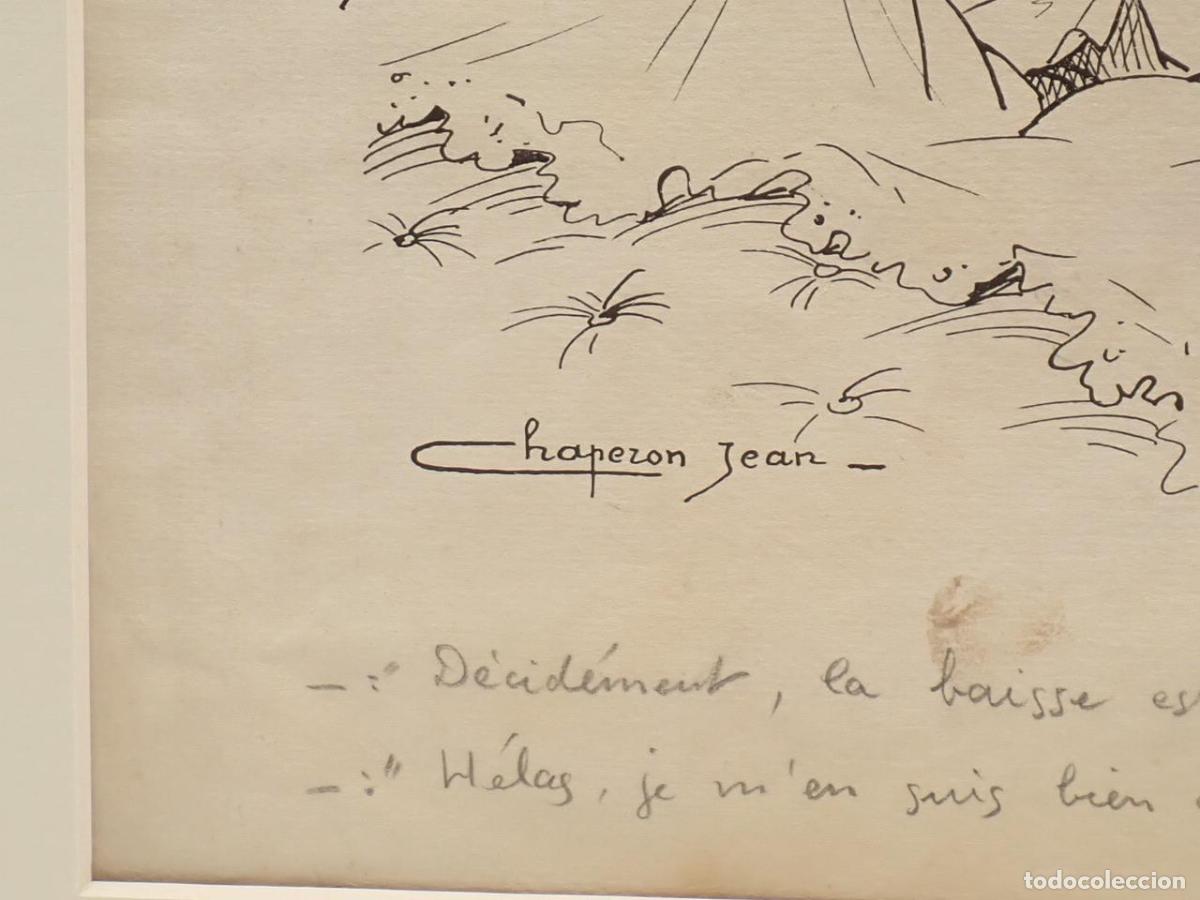 Chaperon Jean _
_ : " Décidément, la baisse es
_ : " Hélas, je m'en suis bien
todocoleccion